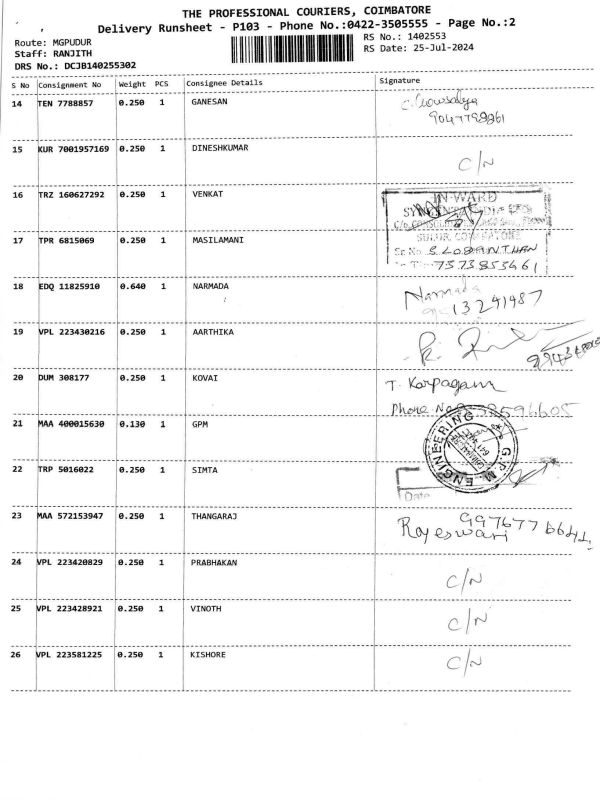 THE PROFESSIONAL COURIERS, COIMBATORE
Delivery Runsheet - P103 - Phone No.:0422-3505555 - Page No.:2
Route: MGPUDUR
Staff: RANJITH
DRS No.: DCJB140255302
RS No.: 1402553
RS Date: 25-Jul-2024
S No Consignment No Weight PCS Consignee Details Signature
14 TEN 7788857 0.250 1 GANESAN
C. Gowsalya
15 KUR 7001957169 0.250 1 DINESHKUMAR C/N
16 TRZ 160627292 0.250 1 VENKAT
IN-WARD
17 TPR 6815069 0.250 1 MASILAMANI
S. LOGANTHAN
7573853461
18 EDQ 11825910 0.640 1 NARMADA Narmada
13241487
19 VPL 223430216 0.250 1 AARTHIKA
20 DUM 308177 0.250 1 KOVAI T. Karpagam
Phone No
21 MAA 400015630 0.130 1 GPM
G.P.M ENGINEERING
22 TRP 5016022 0.250 1 SIMTA
Date
23 MAA 572153947 0.250 1 THANGARAJ
Rajeswari
24 VPL 223420829 0.250 1 PRABHAKAN C/N
25 VPL 223428921 0.250 1 VINOTH C/N
26 VPL 223581225 0.250 1 KISHORE C/N